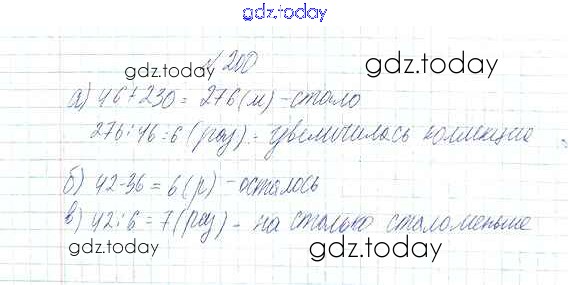 gdz.today
№ 200
gdz.today gdz.today
а) 46+230 = 276 (м) - стало
276:46=6 (раз) - увеличилась коллекция
б) 42-36 = 6 (р) - осталось
в) 42:6 = 7 (раз) - на столько стало меньше
gdz.today gdz.today